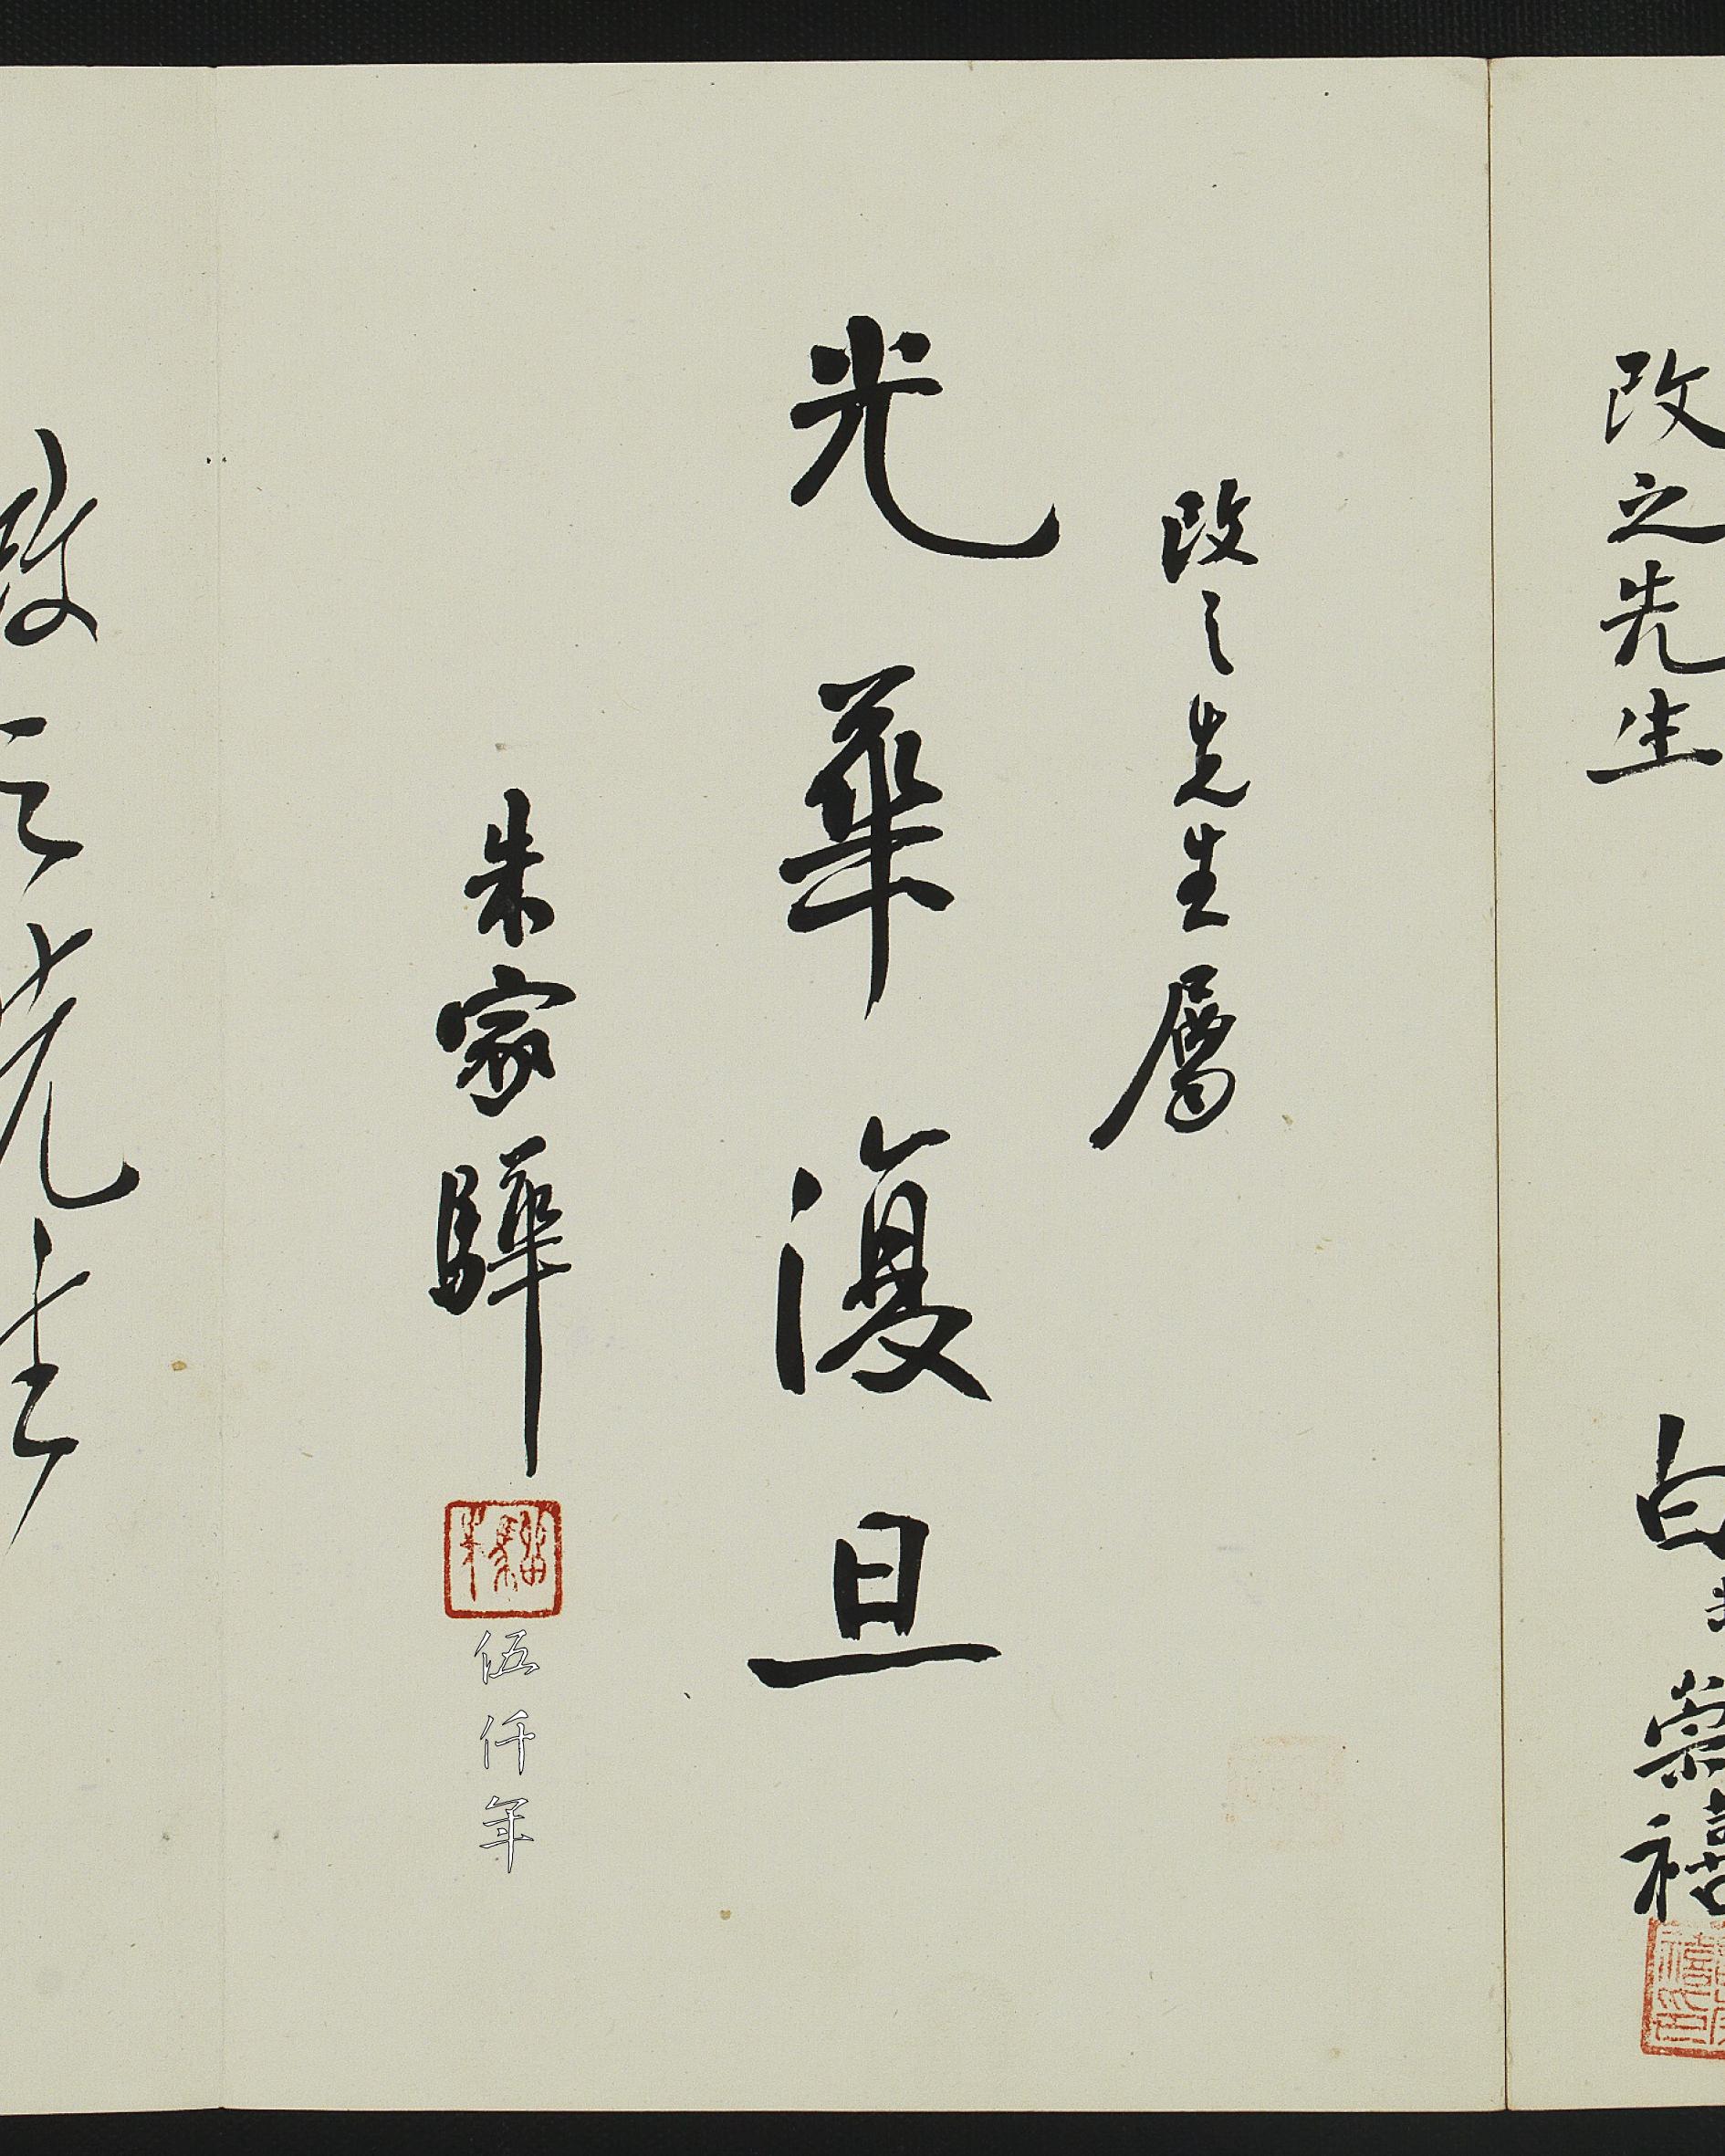 改之先生
白
崇禧
改之先生屬
光華復旦
朱家驊
伍仟年
改之先生